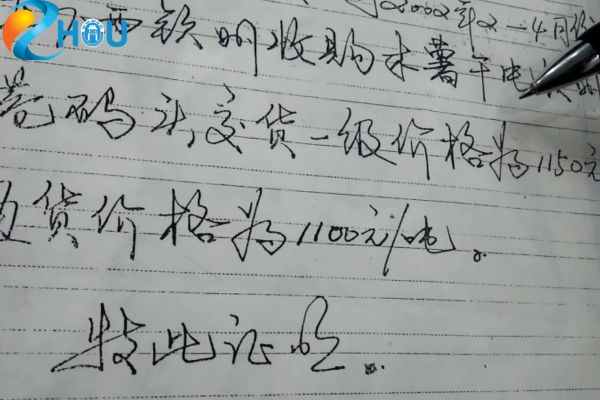 ZHOU
2000年2-4月份
西钦州收购木薯干
码头交货一级价格为1150元
货价格为1100元/吨。
特此证明.